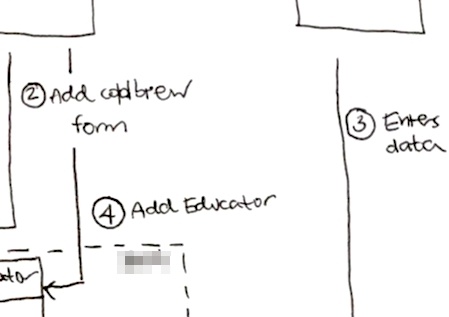 ② Add coldbrew
form
③ Enters
data
④ Add Educator